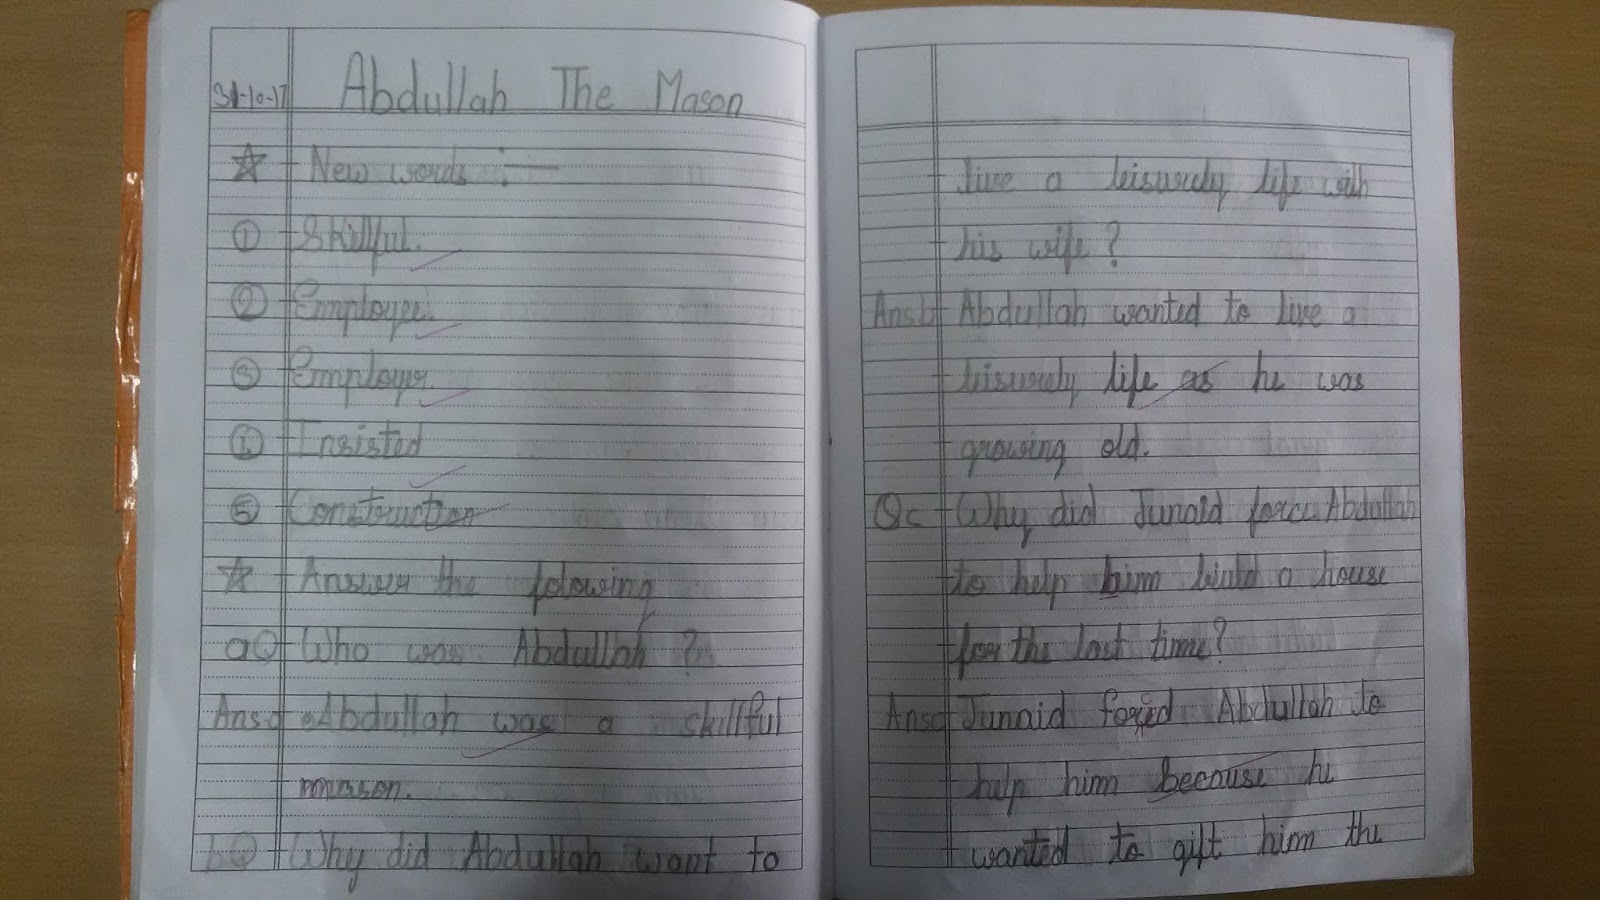 31-10-17 Abdullah The Mason
☆ New words :—
① Skillful.
② Employee.
③ Employer.
④ Insisted
⑤ Construction
☆ Answer the folowing
aQ Who was Abdullah ?
Ansa Abdullah was a skillful
mason.
bQ Why did Abdullah want to
live a leisurely life with
his wife ?
Ansb Abdullah wanted to live a
leisurely life as he was
growing old.
Qc Why did Junaid force Abdullah
to help him biuld a house
for the last time?
Ansc Junaid forced Abdullah to
help him because he
wanted to gift him the